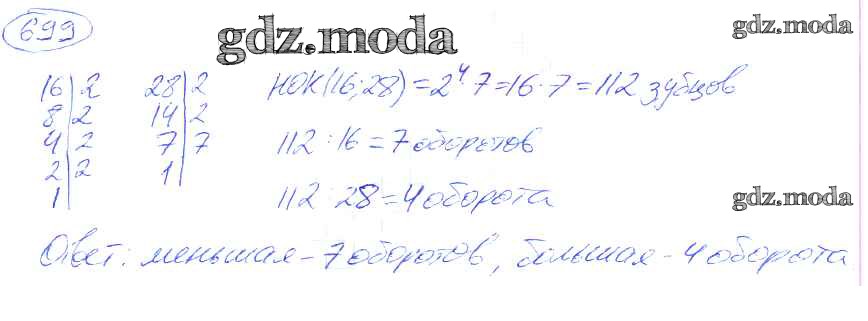 699
gdz.moda
gdz.moda
16|2 28|2 НОК(16;28)=2⁴·7=16·7=112 зубцов
8|2 14|2
4|2 7|7 112:16=7 оборотов
2|2 1|
1| 112:28=4 оборота
gdz.moda
Ответ: меньшая - 7 оборотов, большая - 4 оборота